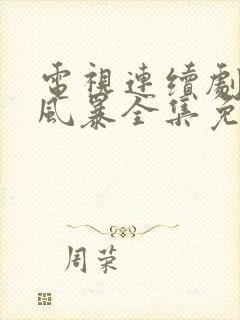 電視連續劇
風暴全集免
周荣